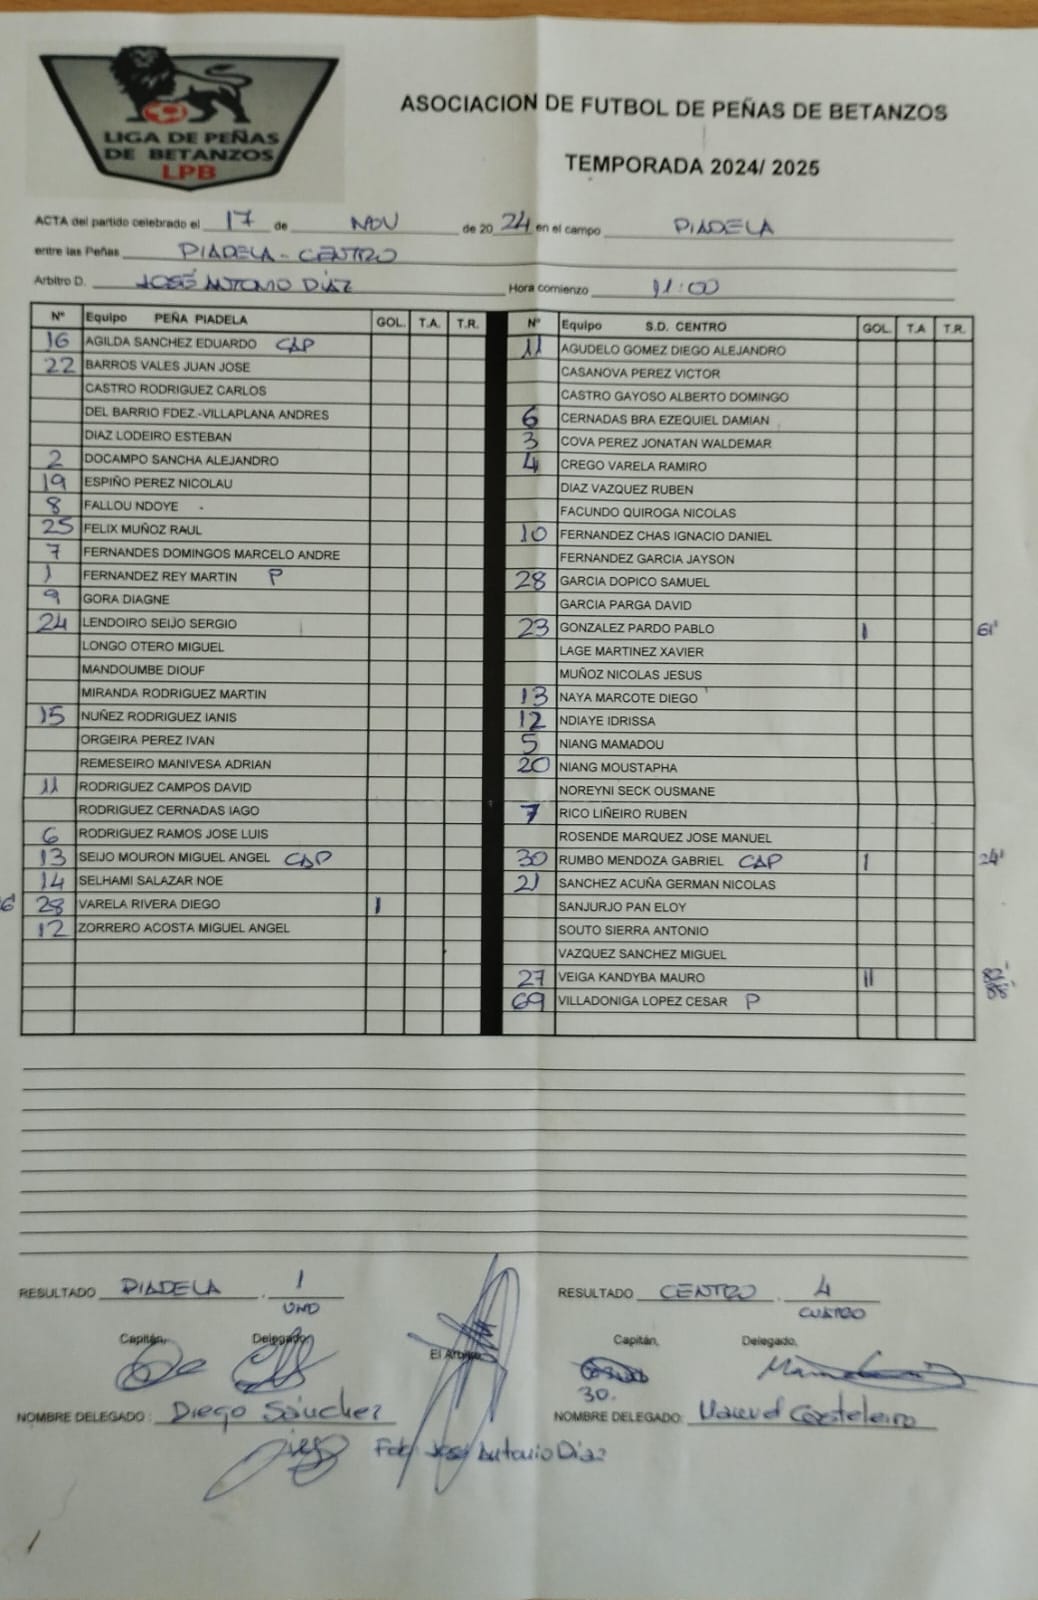 LIGA DE PEÑAS
DE BETANZOS
LPB
ASOCIACION DE FUTBOL DE PEÑAS DE BETANZOS
TEMPORADA 2024/ 2025
ACTA del partido celebrado el 17 de NOV de 2024 en el campo PIADELA
entre las Peñas PIADELA - CENTRO
Arbitro D. JOSÉ ANTONIO DÍAZ Hora comienzo 11:00
Nº Equipo PEÑA PIADELA GOL. T.A. T.R.
16 AGILDA SANCHEZ EDUARDO CAP
22 BARROS VALES JUAN JOSE
CASTRO RODRIGUEZ CARLOS
DEL BARRIO FDEZ.-VILLAPLANA ANDRES
DIAZ LODEIRO ESTEBAN
2 DOCAMPO SANCHA ALEJANDRO
19 ESPIÑO PEREZ NICOLAU
8 FALLOU NDOYE
25 FELIX MUÑOZ RAUL
7 FERNANDES DOMINGOS MARCELO ANDRE
1 FERNANDEZ REY MARTIN P
9 GORA DIAGNE
24 LENDOIRO SEIJO SERGIO
LONGO OTERO MIGUEL
MANDOUMBE DIOUF
MIRANDA RODRIGUEZ MARTIN
15 NUÑEZ RODRIGUEZ IANIS
ORGEIRA PEREZ IVAN
REMESEIRO MANIVESA ADRIAN
11 RODRIGUEZ CAMPOS DAVID
RODRIGUEZ CERNADAS IAGO
6 RODRIGUEZ RAMOS JOSE LUIS
13 SEIJO MOURON MIGUEL ANGEL CAP
14 SELHAMI SALAZAR NOE
28 VARELA RIVERA DIEGO I
12 ZORRERO ACOSTA MIGUEL ANGEL
Nº Equipo S.D. CENTRO GOL. T.A T.R.
11 AGUDELO GOMEZ DIEGO ALEJANDRO
CASANOVA PEREZ VICTOR
CASTRO GAYOSO ALBERTO DOMINGO
6 CERNADAS BRA EZEQUIEL DAMIAN
3 COVA PEREZ JONATAN WALDEMAR
4 CREGO VARELA RAMIRO
DIAZ VAZQUEZ RUBEN
FACUNDO QUIROGA NICOLAS
10 FERNANDEZ CHAS IGNACIO DANIEL
FERNANDEZ GARCIA JAYSON
28 GARCIA DOPICO SAMUEL
GARCIA PARGA DAVID
23 GONZALEZ PARDO PABLO I 61'
LAGE MARTINEZ XAVIER
MUÑOZ NICOLAS JESUS
13 NAYA MARCOTE DIEGO
12 NDIAYE IDRISSA
5 NIANG MAMADOU
20 NIANG MOUSTAPHA
NOREYNI SECK OUSMANE
7 RICO LIÑEIRO RUBEN
ROSENDE MARQUEZ JOSE MANUEL
30 RUMBO MENDOZA GABRIEL CAP I 24'
21 SANCHEZ ACUÑA GERMAN NICOLAS
SANJURJO PAN ELOY
SOUTO SIERRA ANTONIO
VAZQUEZ SANCHEZ MIGUEL
27 VEIGA KANDYBA MAURO II
69 VILLADONIGA LOPEZ CESAR P
RESULTADO PIADELA . 1
UNO
RESULTADO CENTRO . 4
CUATRO
Capitán, Delegado, El Arbitro Capitán, Delegado,
30.
NOMBRE DELEGADO : Diego Sánchez NOMBRE DELEGADO: Manuel Casteleiro
Fdo: José Antonio Díaz